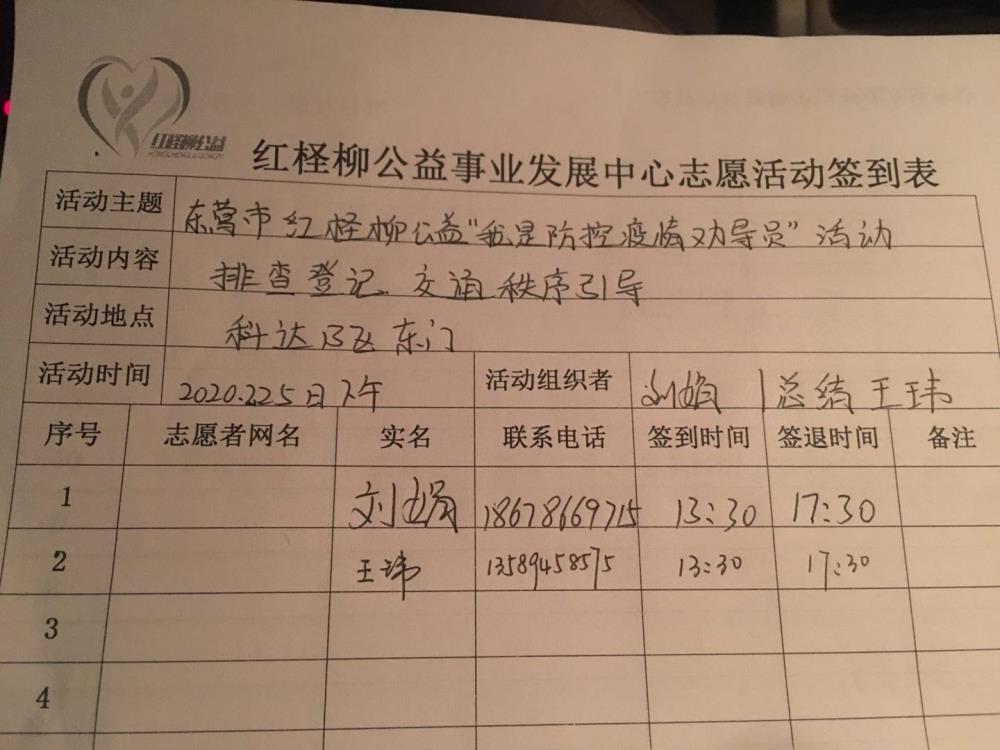 红柽柳公益
红柽柳公益事业发展中心志愿活动签到表
活动主题 东营市红柽柳公益“我是防控疫情劝导员”活动
活动内容 排查登记、交通秩序引导
活动地点 科达B区东门
活动时间 2020.2.25日下午 活动组织者 刘娟 | 总结 王玮
序号 志愿者网名 实名 联系电话 签到时间 签退时间 备注
1 刘娟 18678669715 13:30 17:30
2 王玮 13589458575 13:30 17:30
3
4